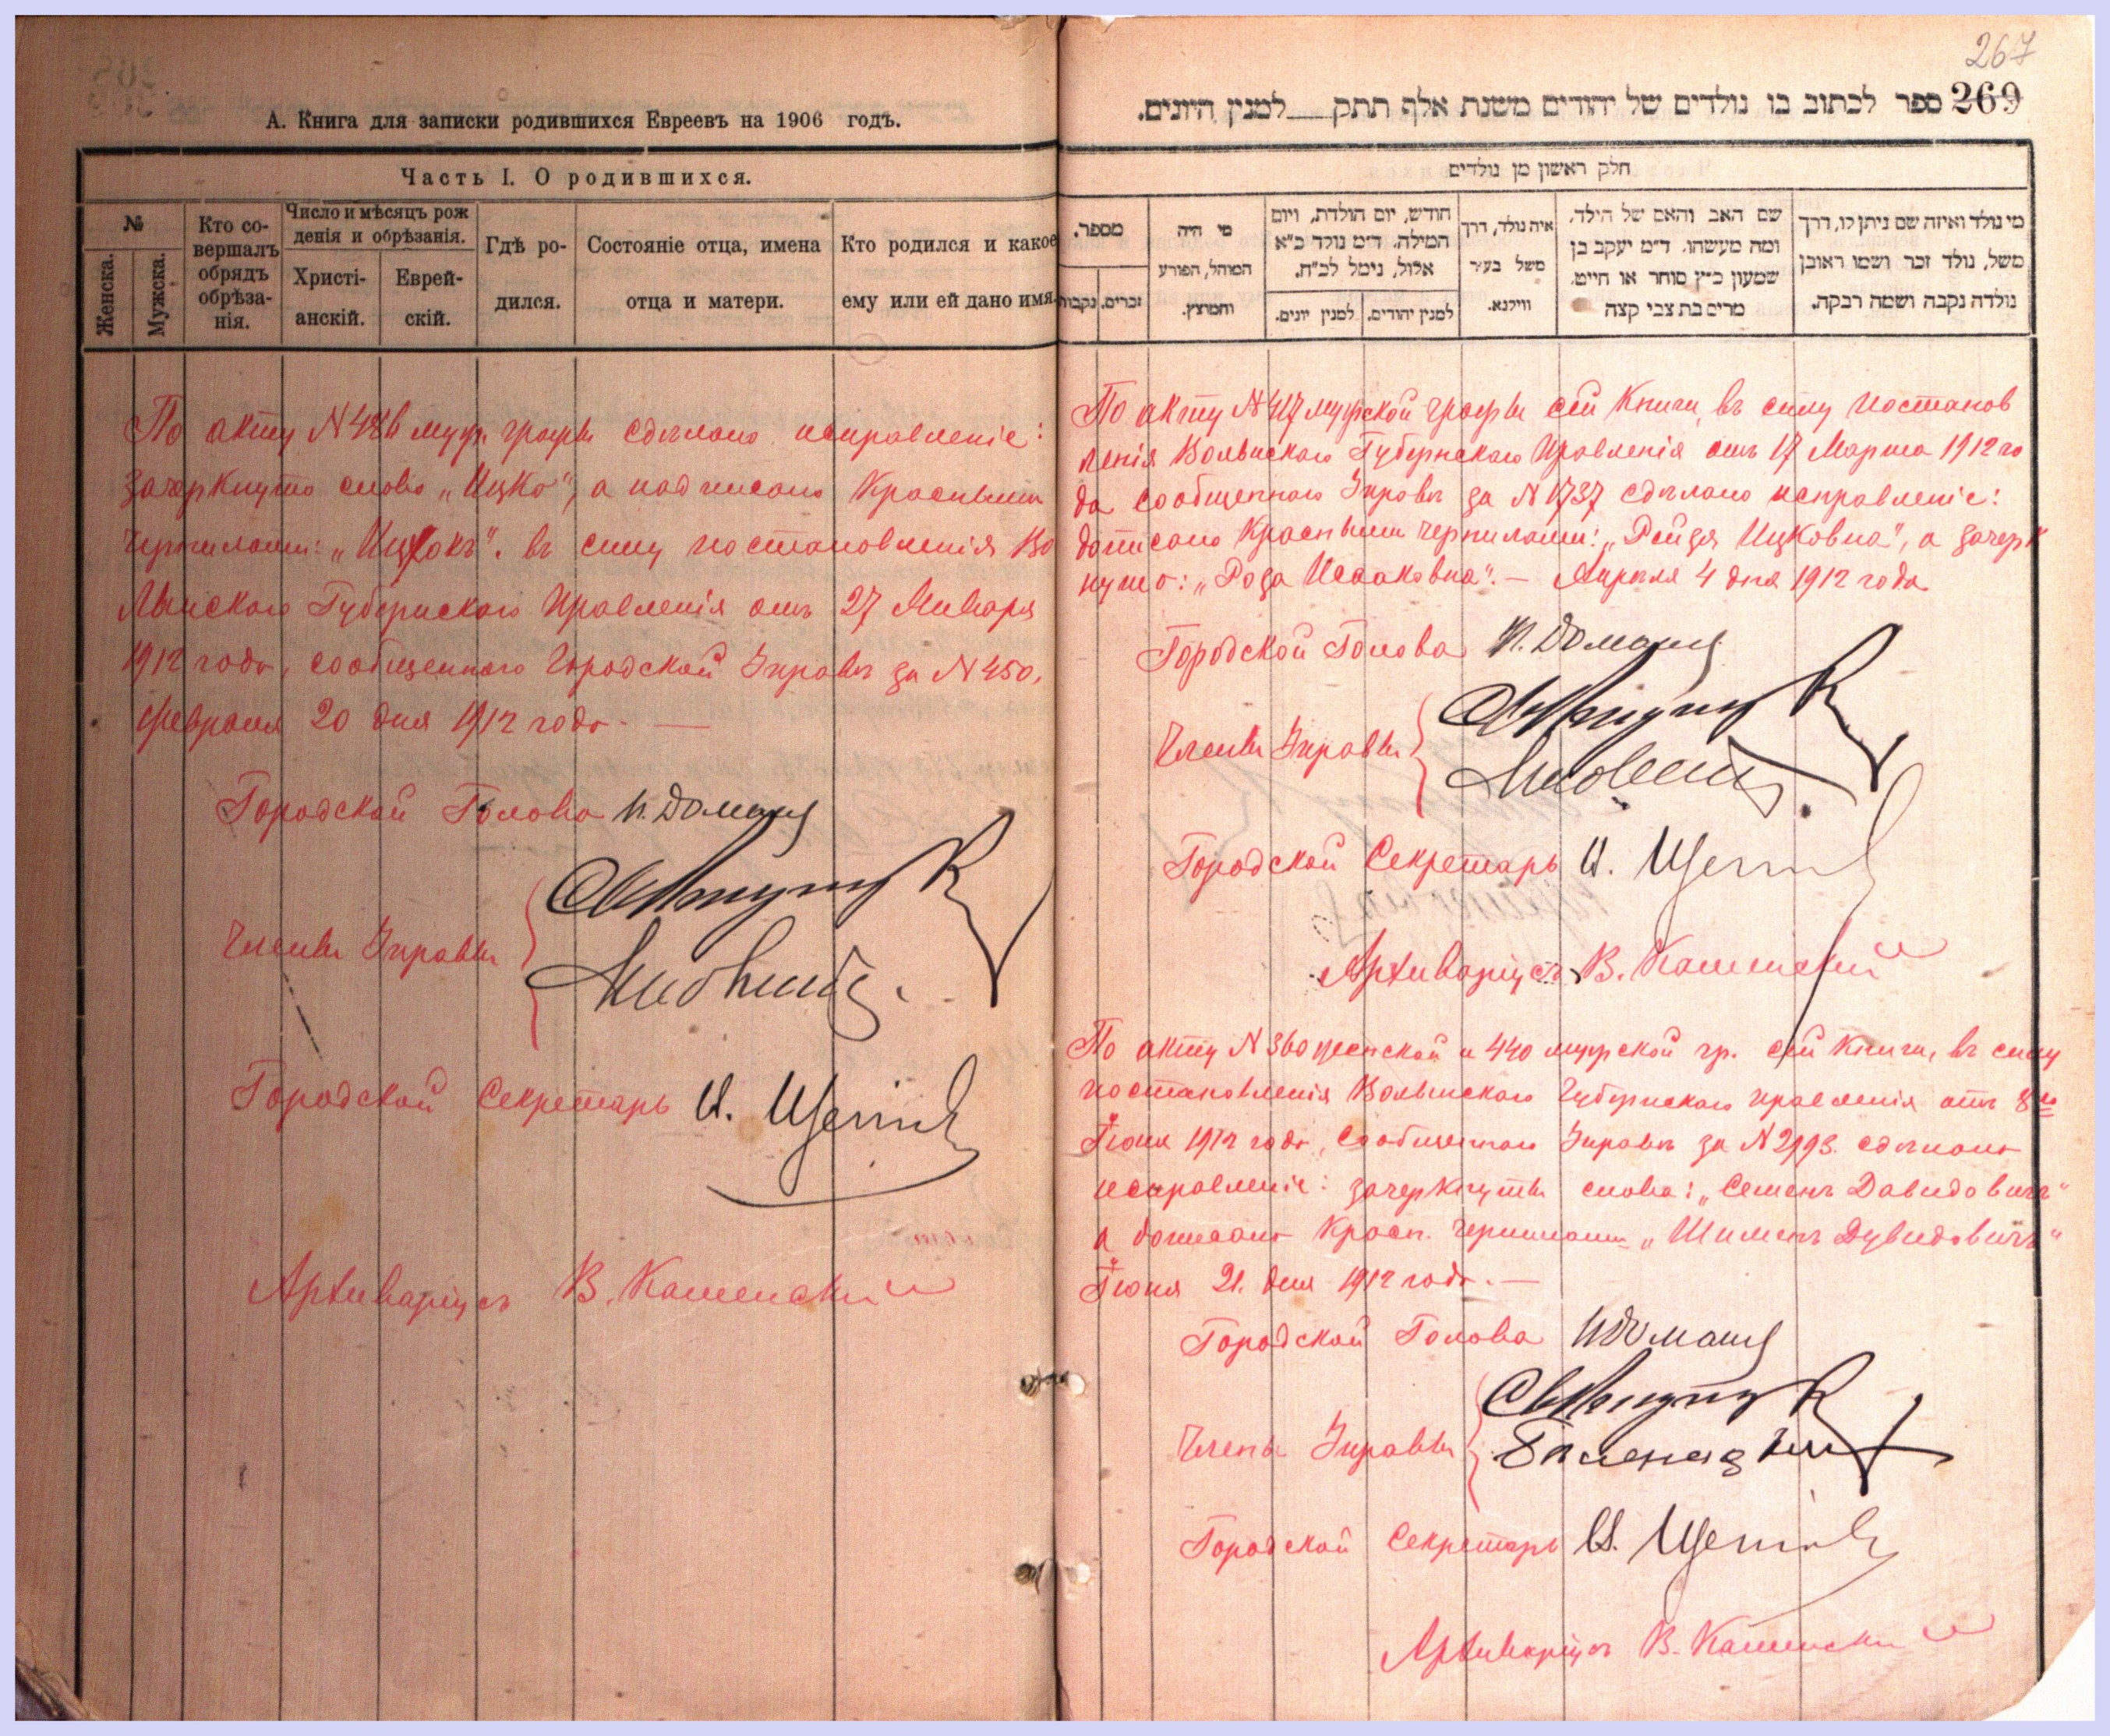 А. Книга для записки родившихся Евреевъ на 1906 годъ.
Часть I. О родившихся.
№
Женска.
Мужска.
Кто со-
вершалъ
обрядъ
обрѣза-
нія.
Число и мѣсяцъ рож
денія и обрѣзанія.
Христі-
анскій.
Еврей-
скій.
Гдѣ ро-
дился.
Состояніе отца, имена
отца и матери.
Кто родился и какое
ему или ей дано имя.
По акту № муж. графы сдѣлано исправленіе:
зачеркнуто слово „Ицко", а надписано красными
чернилами: „Ицхокъ". въ силу постановленія Во
лынскаго Губернскаго Правленія отъ 27 Января
1912 года, сообщеннаго Городской Управѣ за № 450,
Февраля 20 дня 1912 года. —
Городской Голова
Члены Управы
Городской Секретарь
Архиваріусъ В. Каменскій
267
269 ספר לכתוב בו נולדים של יהודים משנת אלף תתק למנין היונים.
חלק ראשון מן נולדים
מספר.
זכרים.
נקבות
מי היה
המוהל, הפורע
והמוצץ.
חודש, יום הולדת, ויום
המילה. ד״מ נולד כ״א
אלול, נימל לכ״ח.
למנין יהודים.
למנין יונים.
איה נולד, דרך
משל בעיר
ווילנא.
שם האב והאם של הילד,
ומה מעשהו. ד״מ יעקב בן
שמעון כ״ץ סוחר או חייט,
מרים בת צבי קצה
מי נולד ואיזה שם ניתן לו, דרך
משל, נולד זכר ושמו ראובן
נולדה נקבה ושמה רבקה.
По акту № 417 мужской графы сей книги, въ силу постанов
ленія Волынскаго Губернскаго Правленія отъ 17 Марта 1912 го
да сообщеннаго Управѣ за № 1737 сдѣлано исправленіе:
дописано красными чернилами: „Рейзя Ицковна", а зачерк
нуто: „Роза Исааковна". — Апрѣля 4 дня 1912 года
Городской Голова
Члены Управы
Городской Секретарь
Архиваріусъ В. Каменскій
По акту № 360 женской и 440 мужской гр. сей книги, въ силу
постановленія Волынскаго Губернскаго правленія отъ 8го
Іюня 1912 года, сообщеннаго Управѣ за № сдѣлано
исправленіе: зачеркнуты слова: „Семенъ Давидовичъ"
а дописано красн. чернилами „Шименъ Дувидовичъ"
Іюня 21. дня 1912 года. —
Городской Голова
Члены Управы
Городской Секретарь
Архиваріусъ В. Каменскій